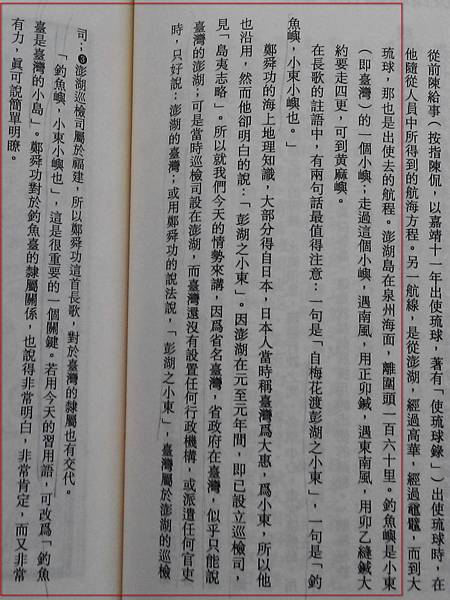 從前陳給事（按指陳侃，以嘉靖十一年出使琉球，著有「使琉球錄」）出使琉球時，在
他隨從人員中所得到的航海方程。另一航線，是從澎湖，經過高華，經過黿鼊，而到大
琉球，那也是出使去的航程。澎湖島在泉州海面，離圍頭一百六十里。釣魚嶼是小東
（即臺灣）的一個小嶼；走過這個小嶼，遇南風，用正卯鍼，遇東南風，用卯乙縫鍼大
約要走四更，可到黃麻嶼。
在長歌的註語中，有兩句話最值得注意：一句是「自梅花渡彭湖之小東」，一句是「釣
魚嶼，小東小嶼也。」
鄭舜功的海上地理知識，大部分得自日本，日本人當時稱臺灣爲大惠，爲小東，所以他
也沿用，然而他卻明白的說：「彭湖之小東」。因澎湖在元至元年間，即已設立巡檢司，
見「島夷志略」。所以就我們今天的情勢來講，因爲省名臺灣，省政府在臺灣，似乎只能說
臺灣的澎湖；可是當時巡檢司設在澎湖，而臺灣還沒有設置任何行政機構，或派遣任何官吏
時，只好說：澎湖的臺灣；或用鄭舜功的說法說，「彭湖之小東」，臺灣屬於澎湖的巡檢
司；❸澎湖巡檢司屬於福建，所以鄭舜功這首長歌，對於臺灣的隸屬也有交代。
「釣魚嶼，小東小嶼也」，這是很重要的一個關鍵。若用今天的習用語，可改爲「釣魚
臺是臺灣的小島」。鄭舜功對於釣魚臺的隸屬關係，也說得非常明白，非常肯定，而又非常
有力，眞可說簡單明瞭。